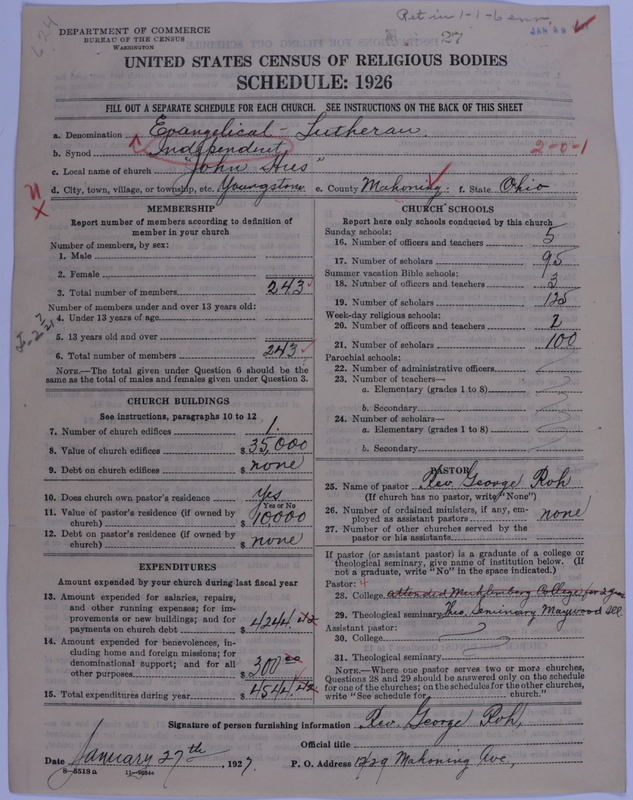 DEPARTMENT OF COMMERCE
BUREAU OF THE CENSUS
WASHINGTON
27
UNITED STATES CENSUS OF RELIGIOUS BODIES
SCHEDULE: 1926
FILL OUT A SEPARATE SCHEDULE FOR EACH CHURCH. SEE INSTRUCTIONS ON THE BACK OF THIS SHEET
a. Denomination Evangelical - Lutheran
b. Synod Independent 2-0-1
c. Local name of church "John Hus"
d. City, town, village, or township, etc. Youngstown e. County Mahoning f. State Ohio
MEMBERSHIP
Report number of members according to definition of member in your church
Number of members, by sex:
1. Male
2. Female
3. Total number of members 243
Number of members under and over 13 years old:
4. Under 13 years of age
5. 13 years old and over
6. Total number of members 243
NOTE.—The total given under Question 6 should be the same as the total of males and females given under Question 3.
CHURCH BUILDINGS
See instructions, paragraphs 10 to 12
7. Number of church edifices 1
8. Value of church edifices $ 35,000
9. Debt on church edifices $ none
10. Does church own pastor's residence Yes
Yes or No
11. Value of pastor's residence (if owned by church) $ 10000
12. Debt on pastor's residence (if owned by church) $ none
EXPENDITURES
Amount expended by your church during last fiscal year
13. Amount expended for salaries, repairs, and other running expenses; for improvements or new buildings; and for payments on church debt $ 4244.42
14. Amount expended for benevolences, including home and foreign missions; for denominational support; and for all other purposes $ 300 00
15. Total expenditures during year $ 4544.42
CHURCH SCHOOLS
Report here only schools conducted by this church
Sunday schools:
16. Number of officers and teachers 5
17. Number of scholars 95
Summer vacation Bible schools:
18. Number of officers and teachers 3
19. Number of scholars 125
Week-day religious schools:
20. Number of officers and teachers 2
21. Number of scholars 100
Parochial schools:
22. Number of administrative officers
23. Number of teachers—
a. Elementary (grades 1 to 8)
b. Secondary
24. Number of scholars—
a. Elementary (grades 1 to 8)
b. Secondary
PASTOR
25. Name of pastor Rev. George Roh
(If church has no pastor, write "None")
26. Number of ordained ministers, if any, employed as assistant pastors none
27. Number of other churches served by the pastor or his assistants
If pastor (or assistant pastor) is a graduate of a college or theological seminary, give name of institution below. (If not a graduate, write "No" in the space indicated.)
Pastor: 4
28. College attended Muhlenberg College for 2 years
29. Theological seminary Theo. Seminary Maywood Ill
Assistant pastor:
30. College
31. Theological seminary
NOTE.—Where one pastor serves two or more churches, Questions 28 and 29 should be answered only on the schedule for one of the churches; on the schedules for the other churches, write "See schedule for church."
Signature of person furnishing information Rev. George Roh,
Official title
Date January 27th, 1927. P. O. Address Mahoning Ave,
8—5518a